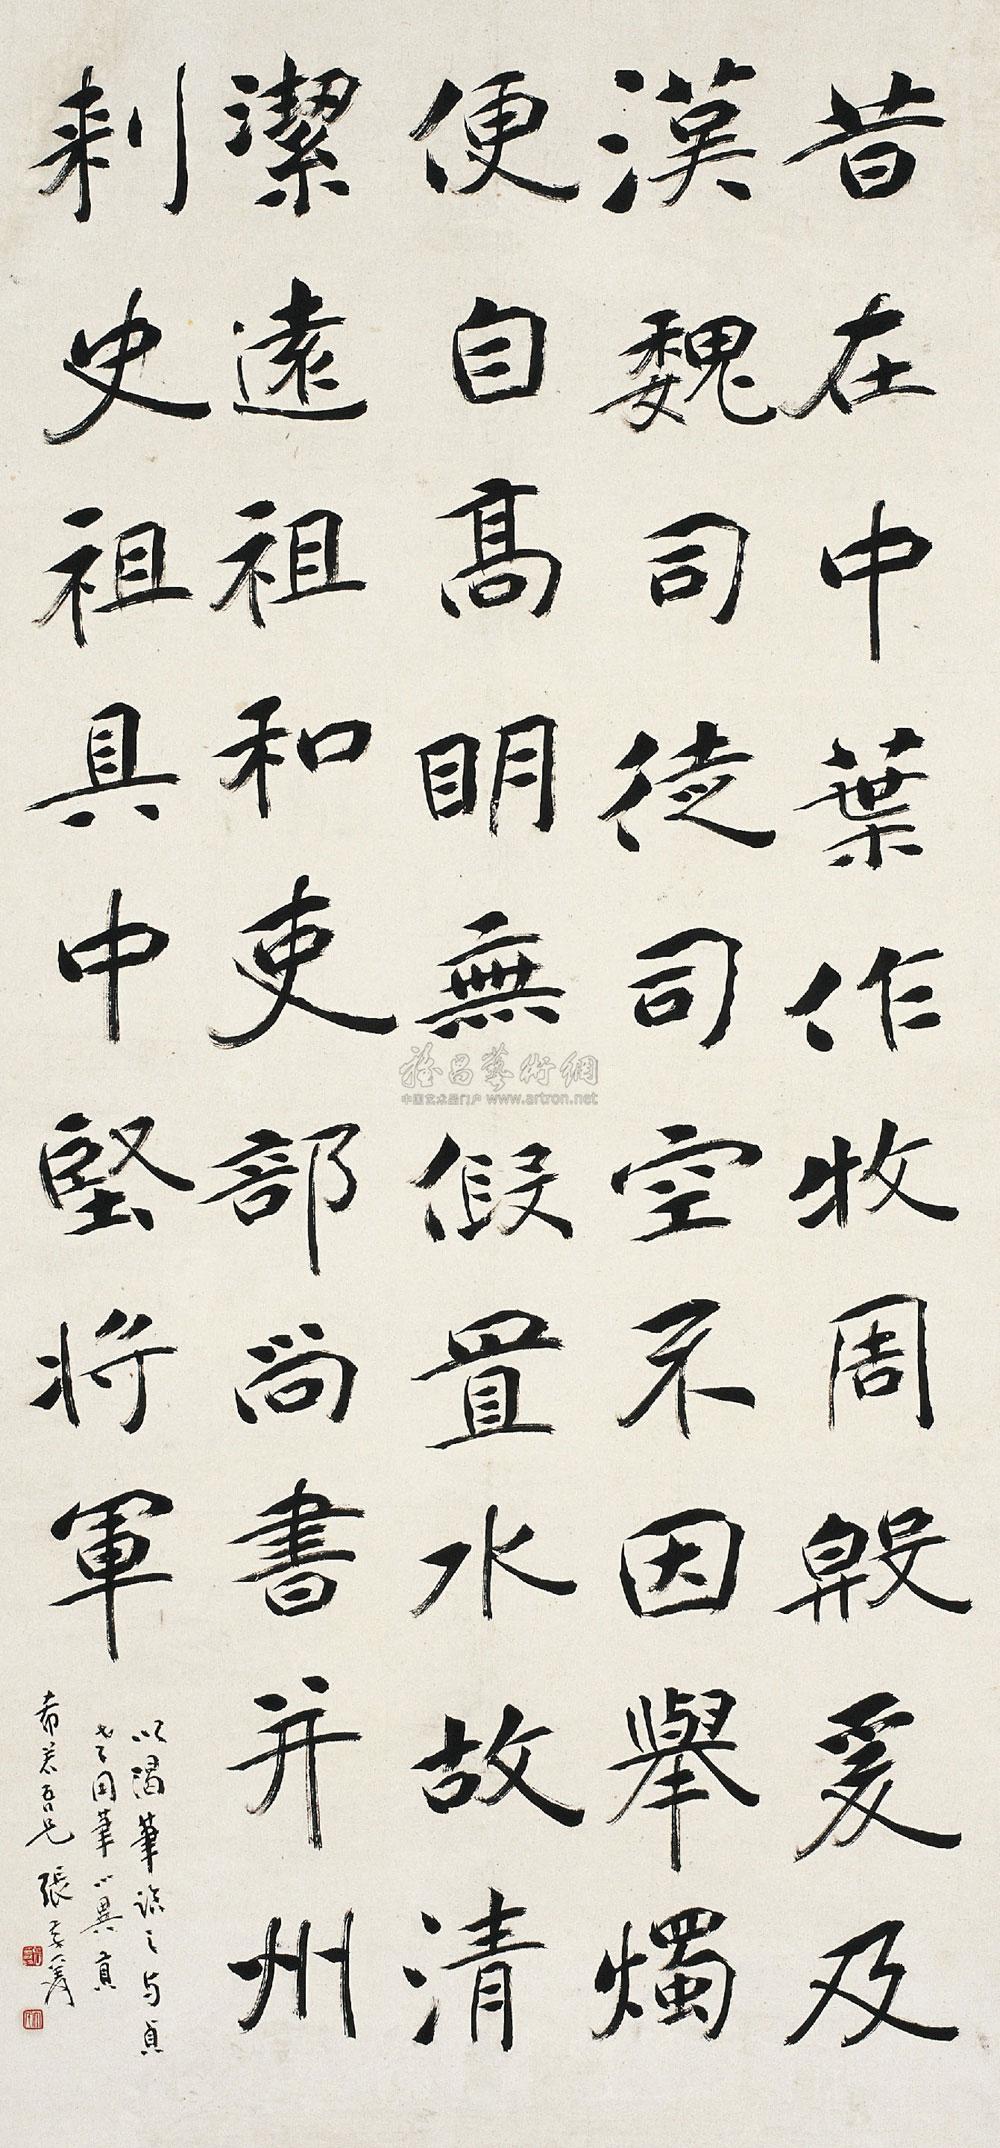 昔在中葉作牧周殷爰及
漢魏司徒司空不因舉燭
便自高明無假置水故清
潔遠祖和吏部尚書并州
刺史祖具中堅將軍
以渴筆臨之与貞
老用筆心異真
希若吾兄 張大千
雅昌藝術網
中国艺术品门户 www.artron.net